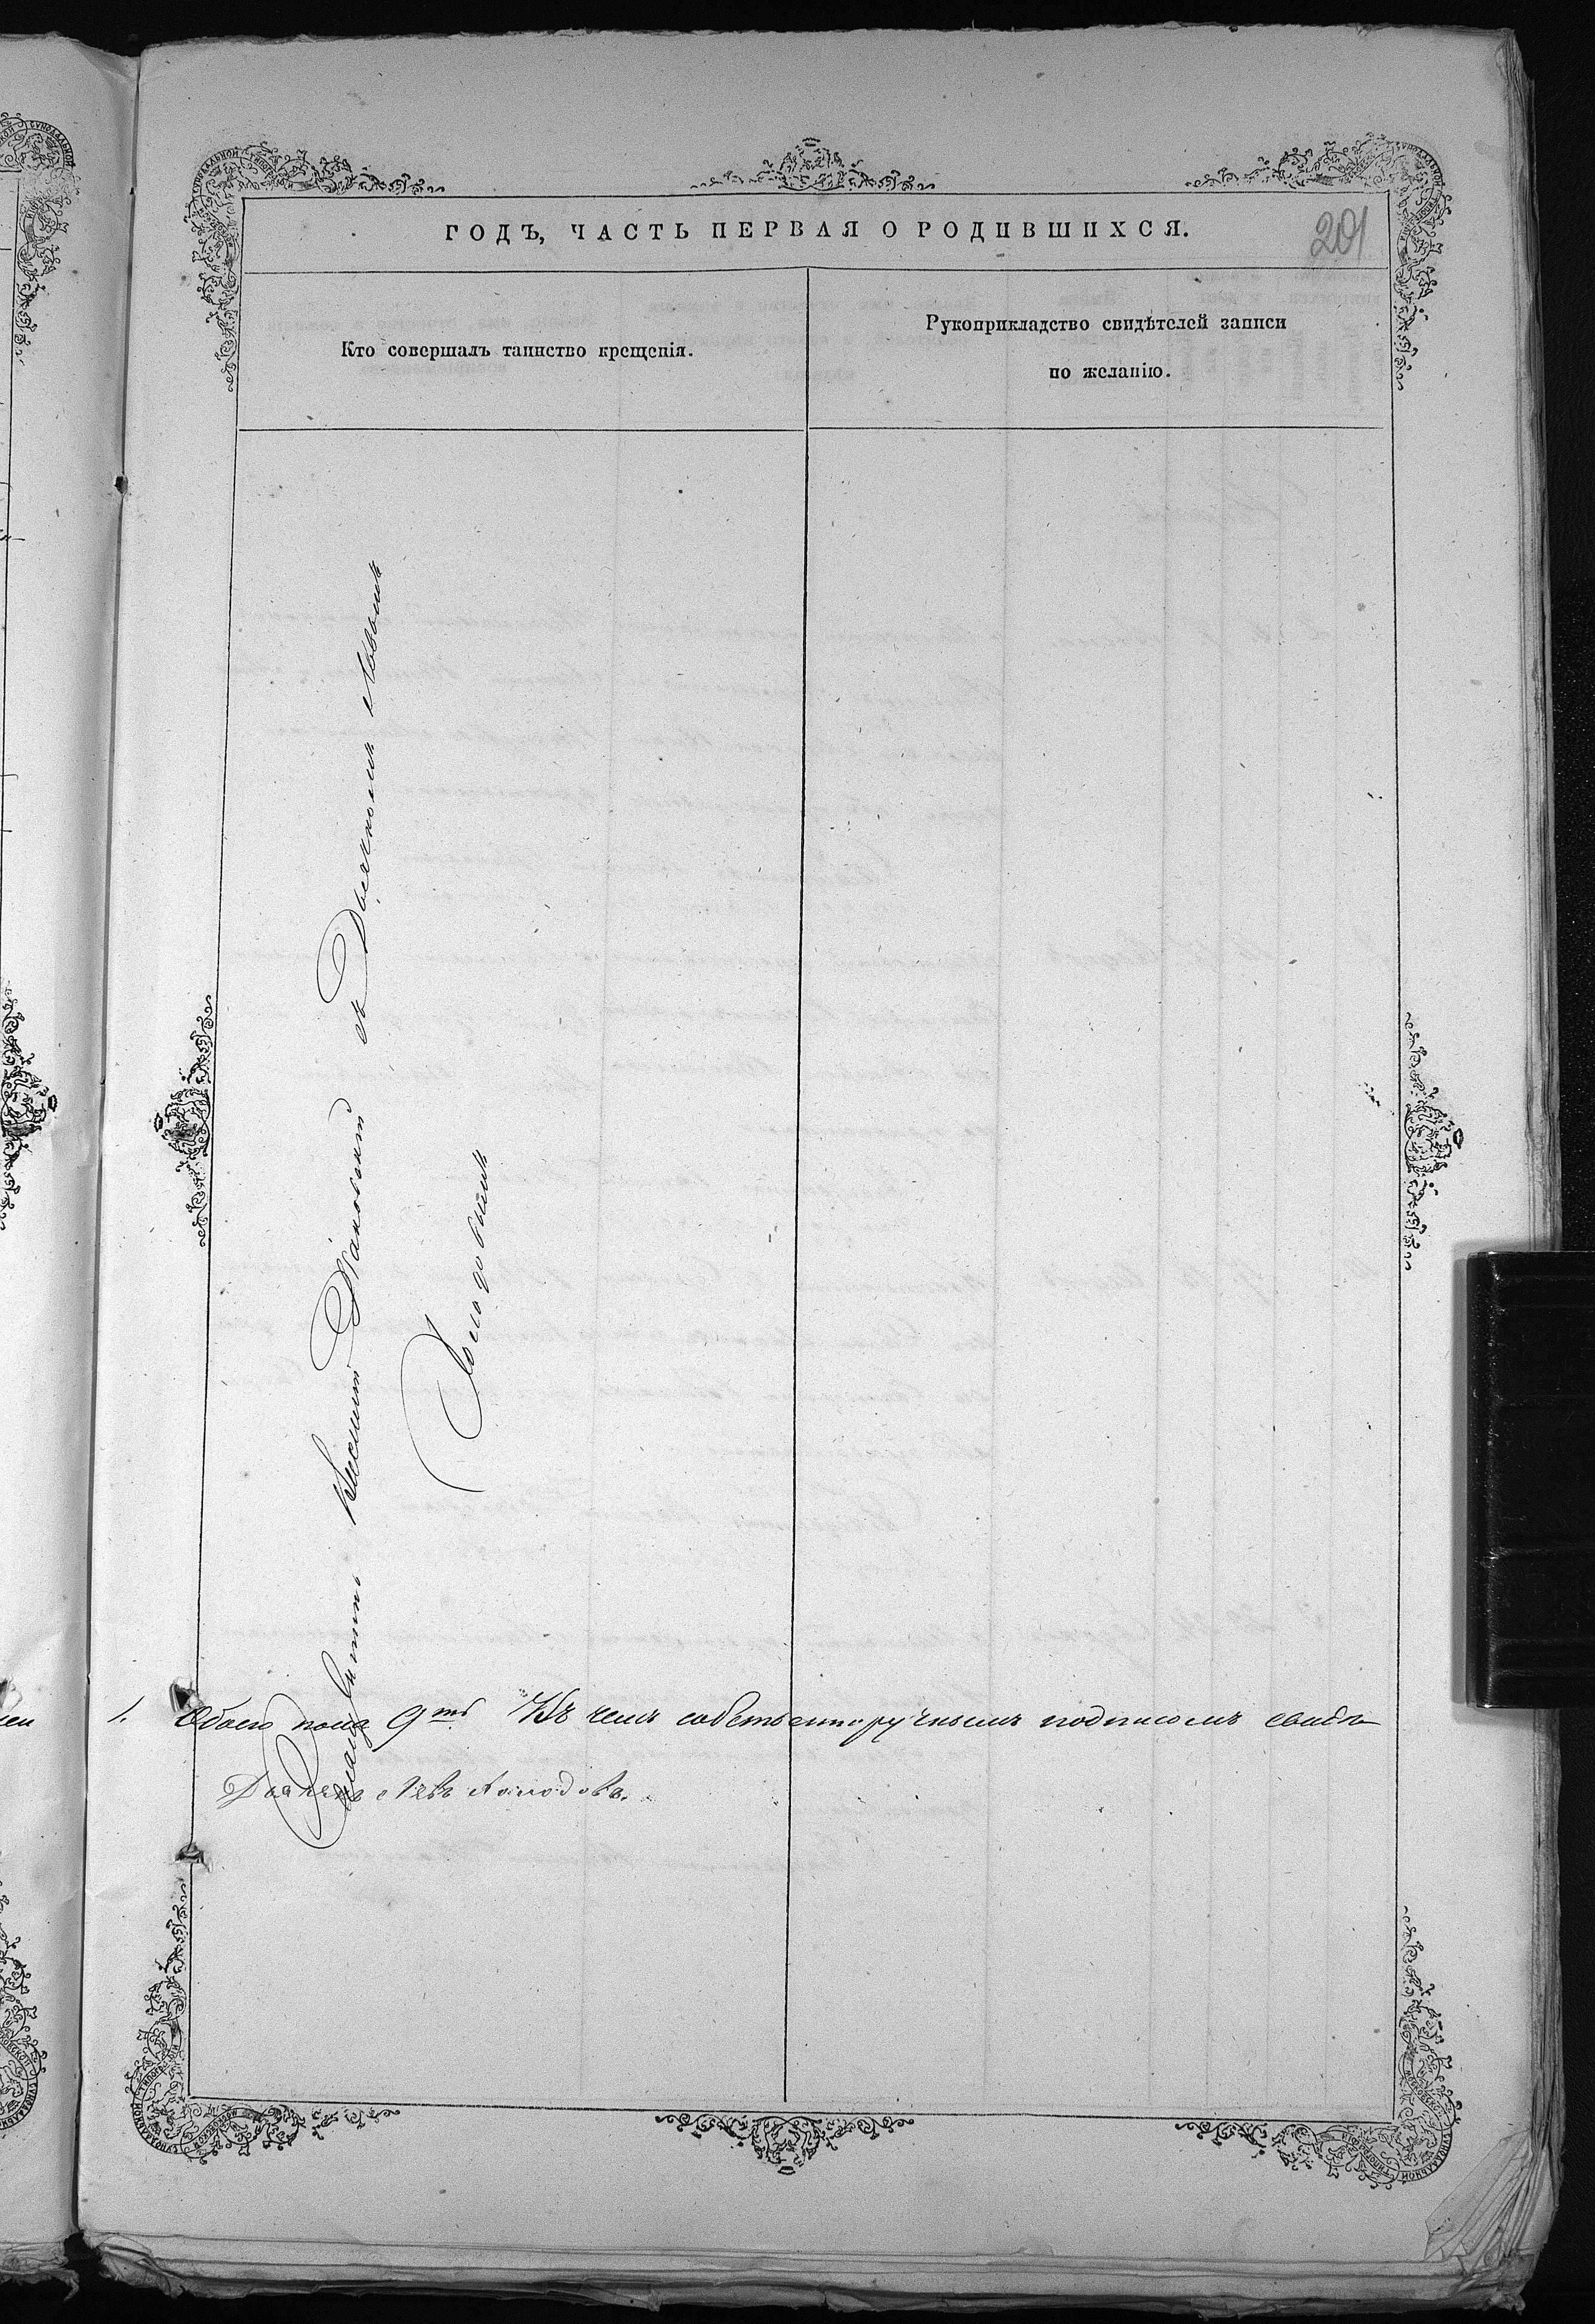 ГОДЪ, ЧАСТЬ ПЕРВАЯ О РОДИВШИХСЯ.
201
Кто совершалъ таинство крещенія.
Рукоприкладство свидѣтелей записи
по желанію.
Священникъ Василій Маковскій съ Дьячкомъ Львомъ
Холодовымъ
1. Обоего пола 9ть Въ чемъ собственноручнымъ подписомъ свидѣ
Дьячекъ Левъ Холодовъ.